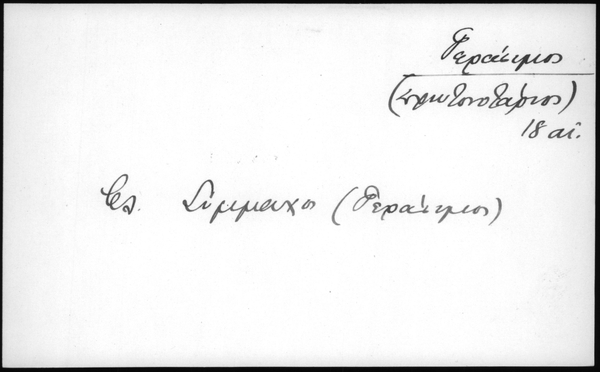 Γεράσιμος
(πρωτονοτάριος)
18 αἰ.
Βλ. Σύμμαχο (Γεράσιμος)